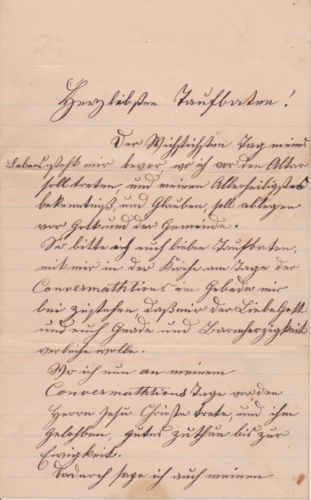 Herzliebsten Taufbaten!
Der Wichtichsten Tag meines
Lebens steht mir bevor, wo ich vor den Altar
soll treten, und meinen Allerheiligstes
bekentniß und Glauben, soll ablegen
vor Gott und der Gemeinde.
So bitte ich euch lieben Taufbaten,
mit mir in der Kirche am Tage der
Convermathtions im Gebede mir
bei zustehen, daß mir der Liebe Gott
und euch Gnade und Barmherzigkeit
verleihe wolle.
Wo ich nun an meinem
Convermathtions Tage vor den
Herrn Jesu Christe trete, und ihm
Gelobben, gutes zuthun bis zur
Ewigkeit.
Dadurch sage ich auch meinen